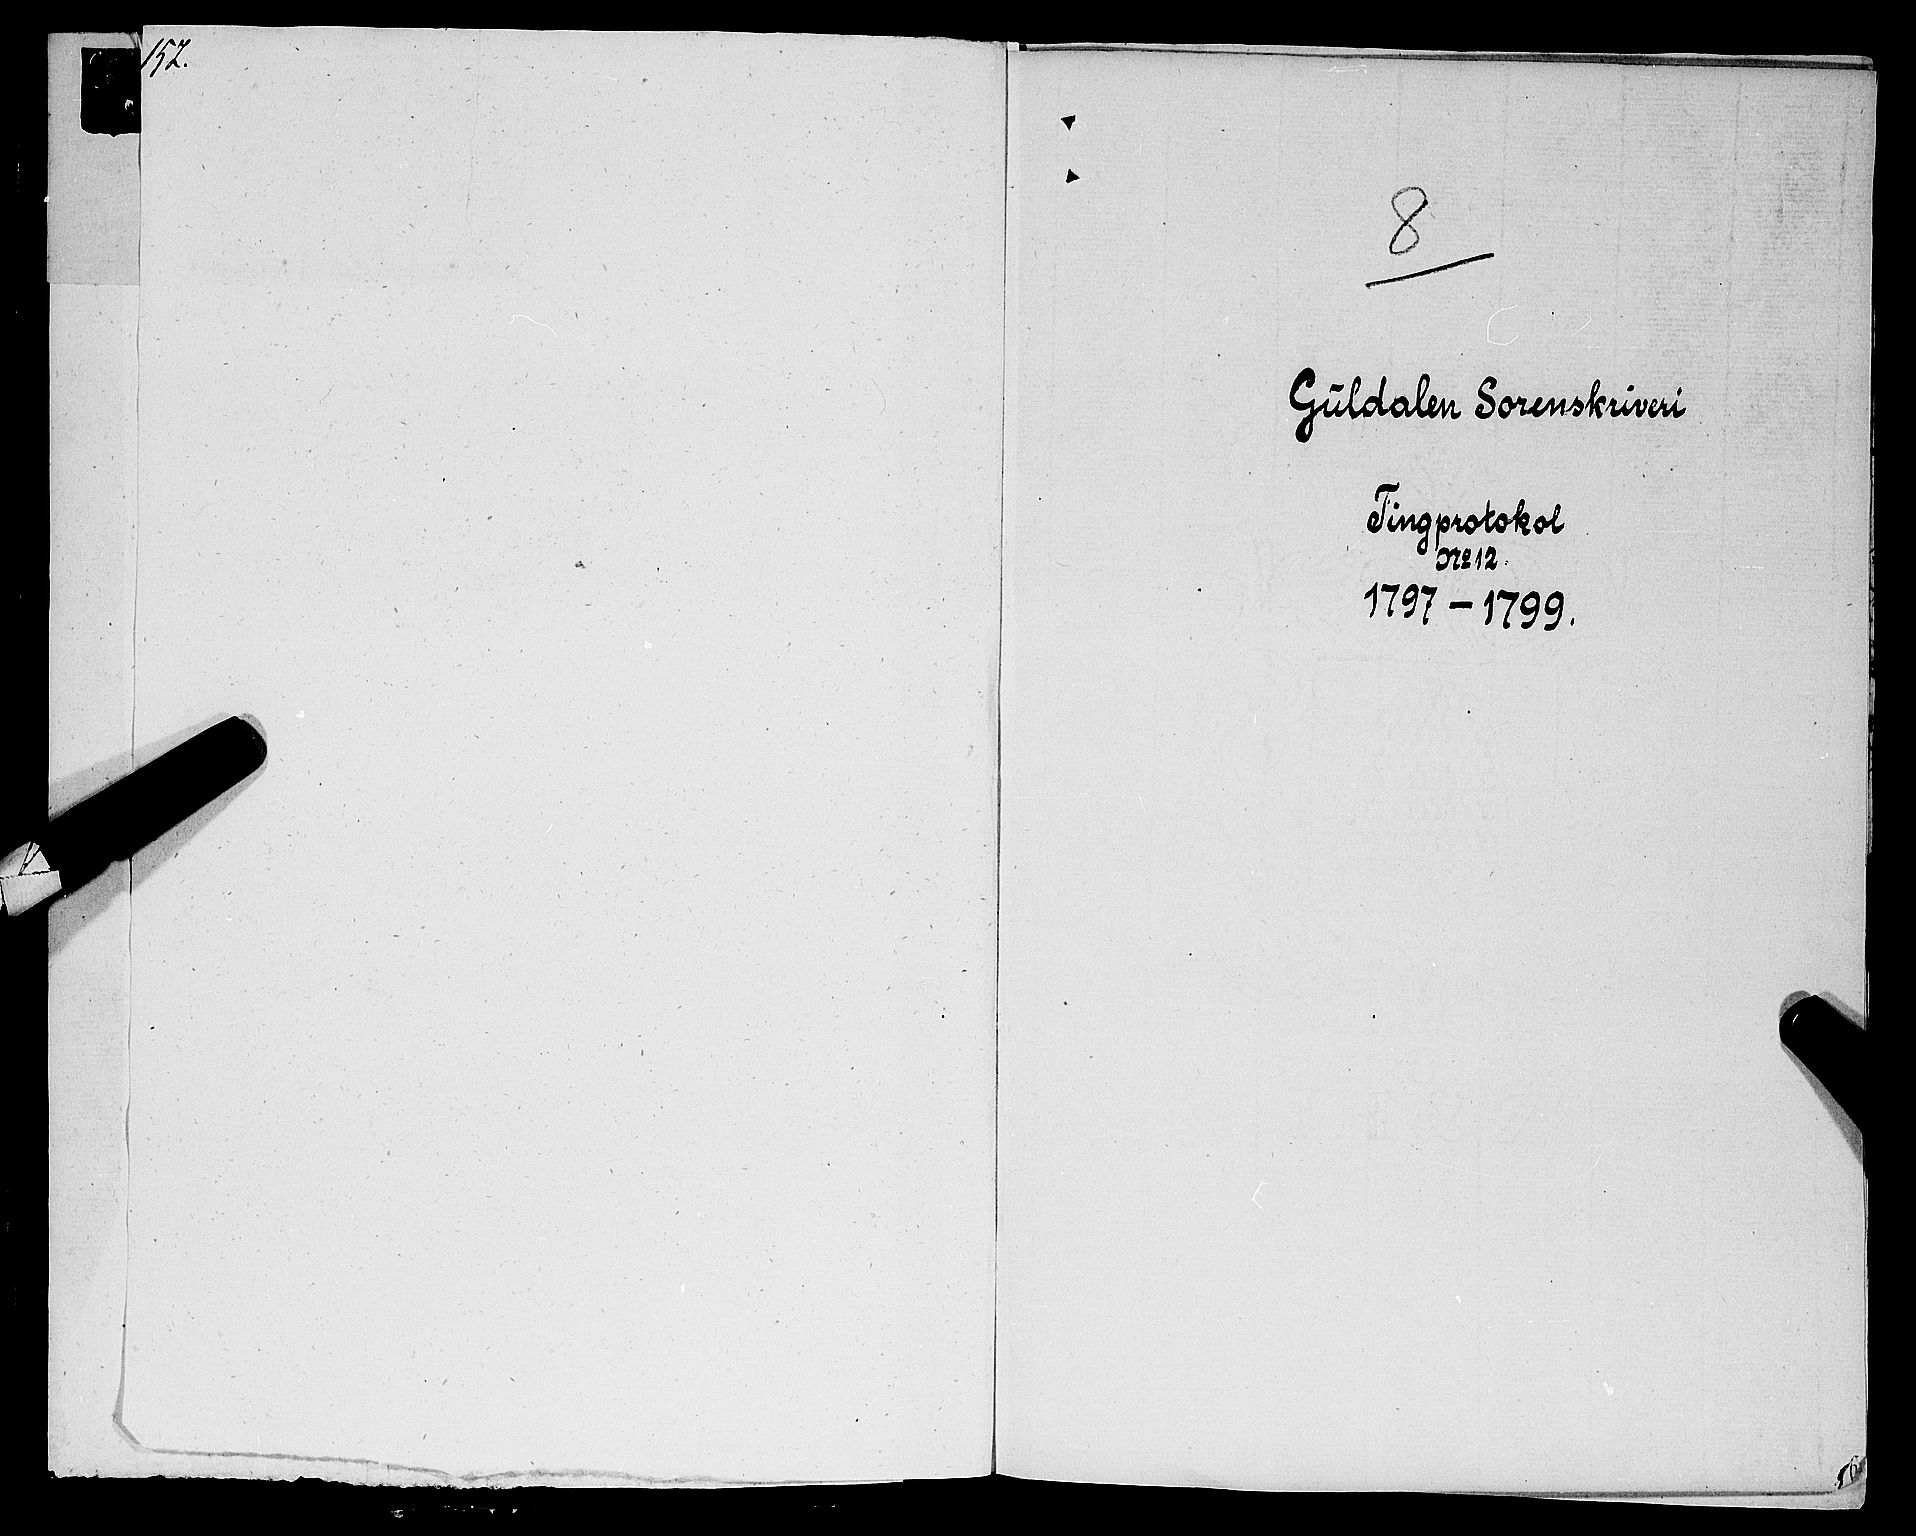 152.
8
Gŭldalen Sorenskriveri
Tingprotokol
No 12.
1797 – 1799.